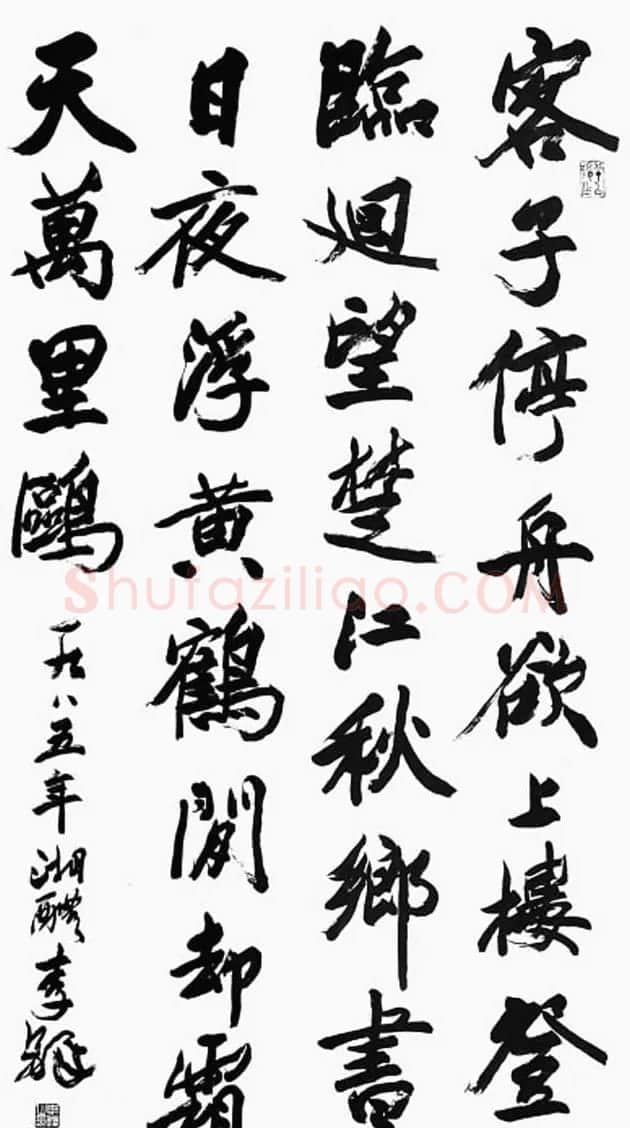 客子停舟欲上樓登
臨迴望楚江秋鄉書
日夜浮黃鶴閒却霜
天萬里鷗
一九八五年湘醴李鐸
Shufaziliao.COM